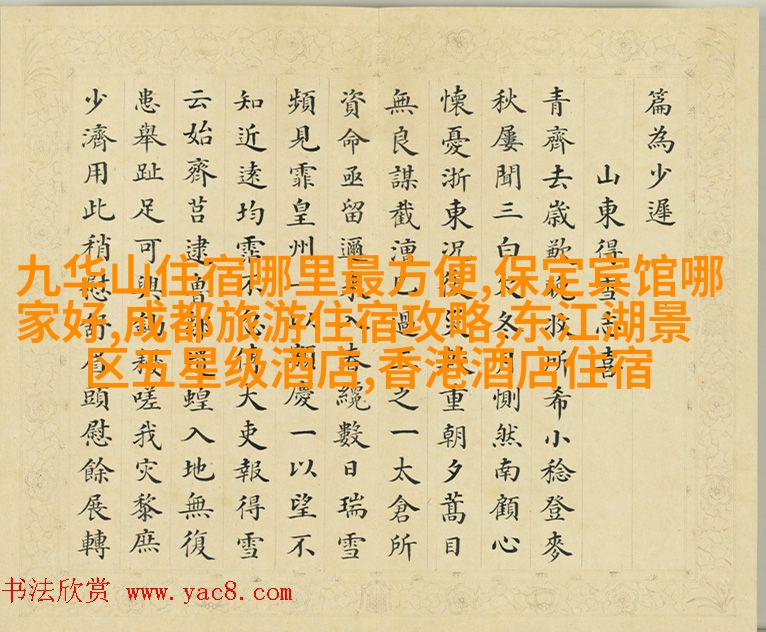 篇為少遲
山東得雪志喜
青齊去歲歉 所希小稔登麥
秋屢聞三白 冬 惻然南顧心
懷憂浙東況復 重朝夕蒿目
無良謀截漕 過 之一太倉所
資命亟留邇 春纔數日瑞雪
頻見霏皇州一以額慶一以望不
知近遠均霏不 大吏報得雪
云始齊莒逮魯 蝗入地無復
患舉趾足可興鋤 嗟我灾黎庶
少濟用此稍慰 慰餘展轉
九华山住宿哪里最方便,保定宾馆哪
家好,成都旅游住宿攻略,东江湖景
区五星级酒店,香港酒店住宿
书法欣赏 www.yac8.com